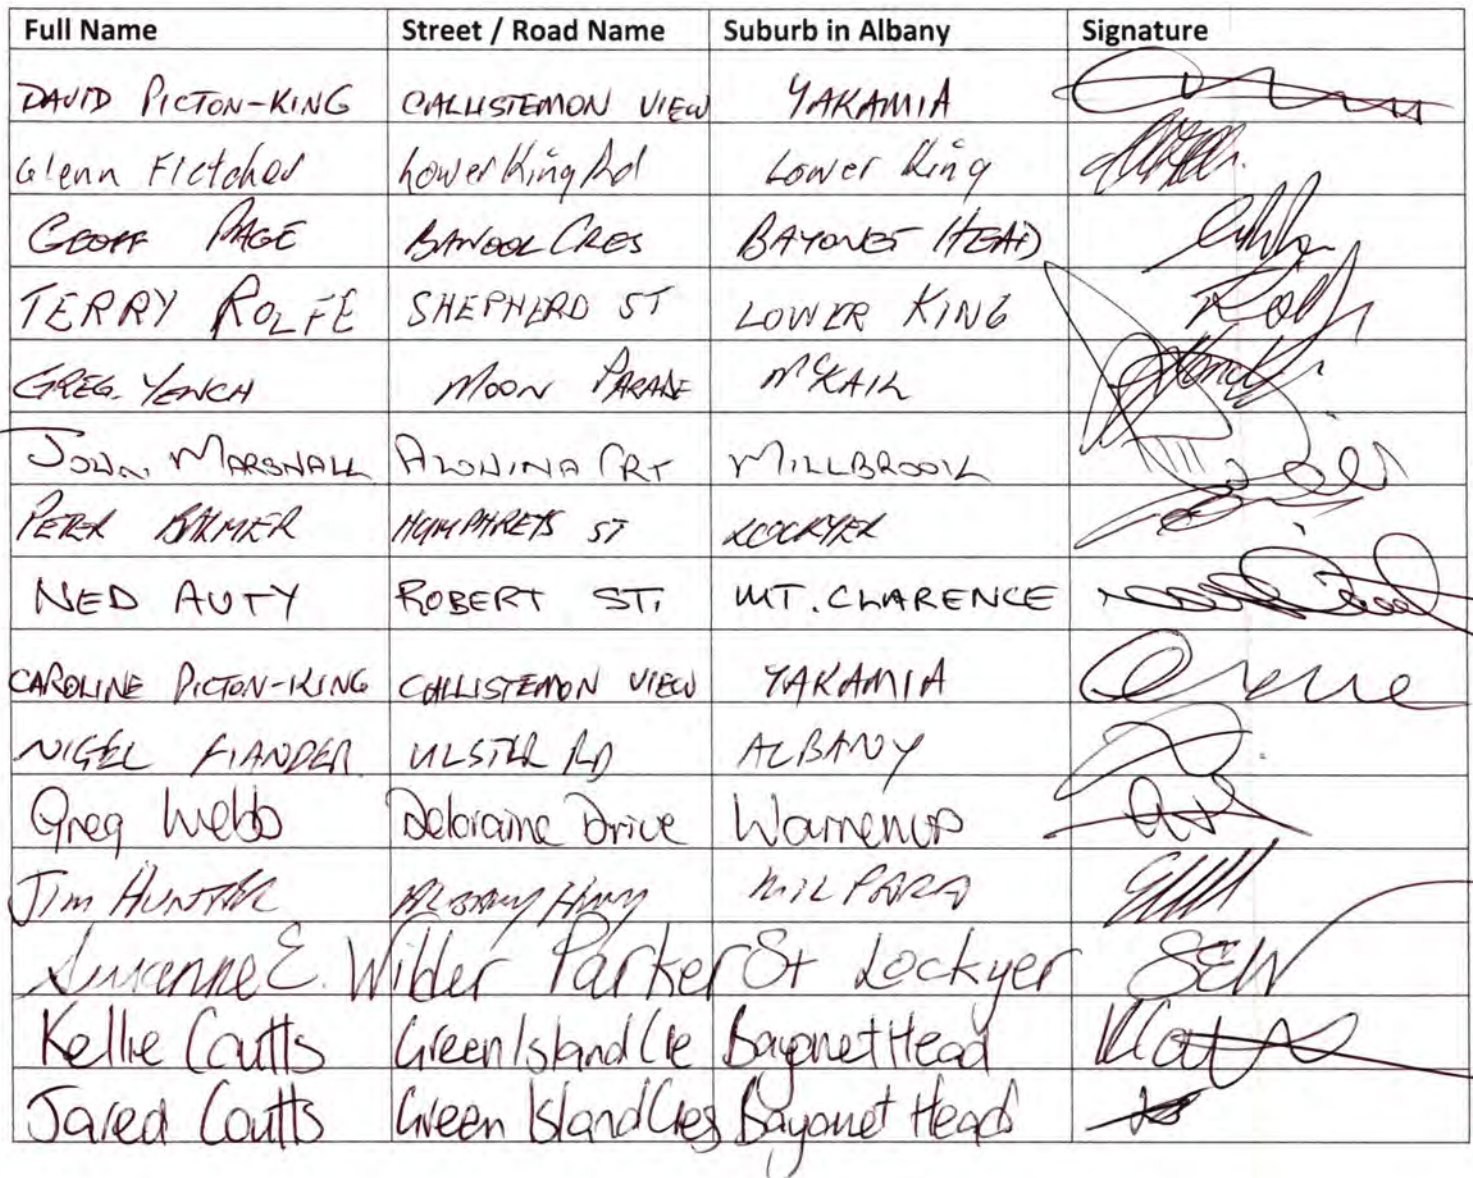 Full Name Street / Road Name Suburb in Albany Signature
DAVID PICTON-KING CALLISTEMON VIEW YAKAMIA
Glenn Fletcher Lower King Rd Lower King
GEOFF PAGE BAWOOL CRES BAYONET HEAD
TERRY ROLFE SHEPHERD ST LOWER KING
GREG. YENCH MOON PARADE McKAIL
JOHN MARSHALL CRT MILLBROOK
PETER BALMER HUMPHREYS ST LOCKYER
NED AUTY ROBERT ST. MT. CLARENCE
CAROLINE PICTON-KING CALLISTEMON VIEW YAKAMIA
NIGEL FIANDER ULSTER RD ALBANY
Greg Webb Deloraine Drive Warrenup
Jim HUNTER ALBANY HWY MILPARA
Suzanne E. Wilder Parker St Lockyer SEW
Kellie Coutts Green Island Cre Bayonet Head
Jared Coutts Green Island Cres Bayonet Head